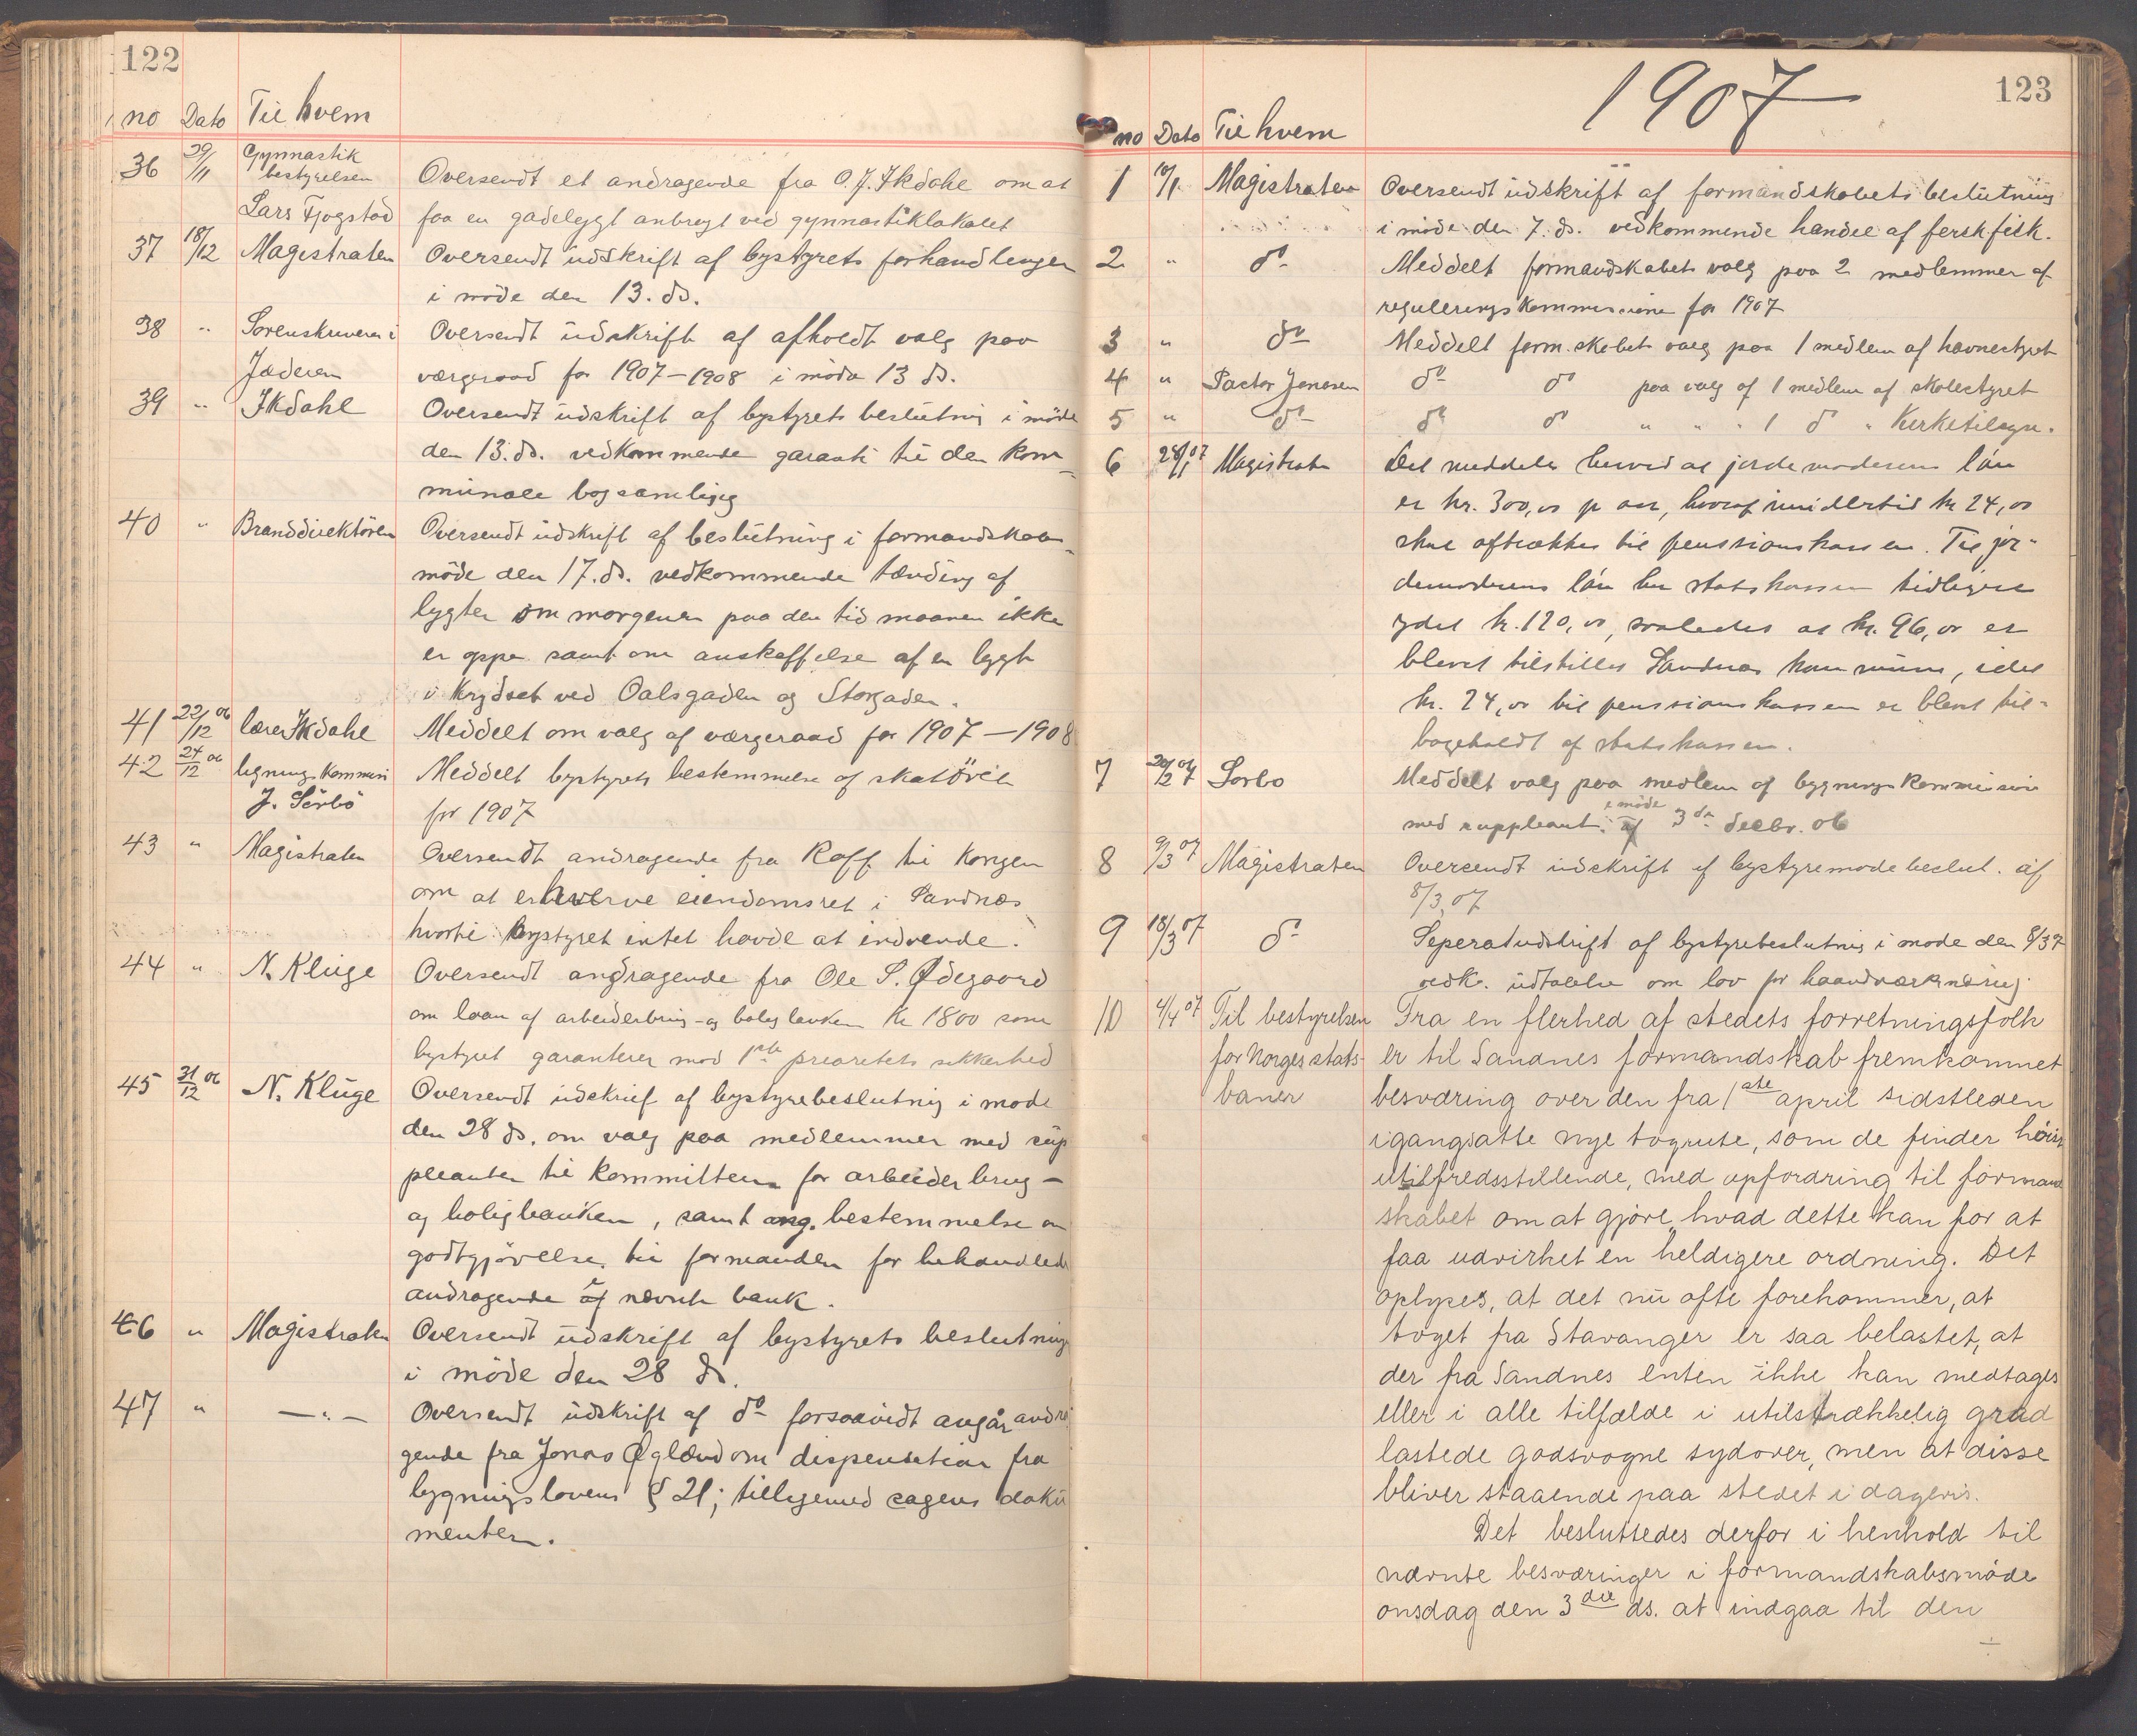 122
no Dato Til hvem
36 29/11 Gymnastik
bestyrelsen Oversendt et andragende fra O. J. Ikdahl om at
Lars Fjogstad faa en gadelygt anbragt ved gymnastiklokalet
37 18/12 Magistraten Oversendt udskrift af bystyrets forhandlinger
i møde den 13. ds.
38 " Sorenskriveren i Oversendt udskrift af afholdt valg paa
Jæderen værgeraad for 1907–1908 i møde 13 ds.
39 " Ikdahl Oversendt udskrift af bystyrets beslutning i møde
den 13. ds. vedkommende garanti til den kom-
munale bogsamling
40 " Branddirektören Oversendt udskrift af beslutning i formandskabs-
möde den 17. ds. vedkommende tænding af
lygter om morgenen paa den tid maanen ikke
er oppe samt om anskaffelse af en lygt
i krydset ved Oalsgaden og Storgaden.
41 22/12 06 lærer Ikdahl Meddelt om valg af værgeraad for 1907–1908
42 24/12 06 ligningskommisi Meddelt bystyrets bestemmelse af skatöret
J. Sörbö for 1907
43 " Magistraten Oversendt andragende fra Roff til Kongen
om at erhverve eiendomsret i Sandnæs
hvortil bystyret intet havde at indvende.
44 " N. Kluge Oversendt andragende fra Ole S. Ødegaard
om laan af arbeiderbrug- og boligbanken kr 1800 som
bystyret garanterer mod 1ste prioritets sikkerhed
45 31/12 06 N. Kluge Oversendt udskrift af bystyrebeslutning i mode
den 28 ds. om valg paa medlemmer med sup
pleanter til kommitteen for arbeider brug –
og boligbanken, samt ang. bestemmelse om
godtgjörelse til formanden for behandlede
andragende af nævnte bank.
46 " Magistraten Oversendt udskrift af bystyrets beslutninge
i möde den 28 ds.
47 " —"— Oversendt udskrift af do forsaavidt angår andra
gende fra Jonas Øglænd om dispensation fra
bygningslovens § 21; tilligemed sagens doku
menter.
1907 123
no Dato Til hvem
1 10/1 Magistraten Oversendt udskrift af formandskabets beslutning
i møde den 7. ds. vedkommende handel af ferskfisk.
2 " do Meddelt formandskabets valg paa 2 medlemmer af
reguleringskommissionen for 1907
3 " do Meddelt form.skabets valg paa 1 medlem af havnestyret
4 " Pastor Jonassen do do paa valg af 1 medlem af skolestyret
5 " do do do " " " 1 do " Kirketilsyn.
6 28/1 07 Magistraten Det meddeles herved at jordemoderens lön
er kr. 300,00 pr aar, hvoraf imidlertid kr 24,00
skal aftrækkes til pensionskassen. Til jor-
demoderens lön har statskassen tidligere
ydet kr. 120,00, saaledes at kr. 96,00 er
blevet tilstillet Sandnæs kommune, idet
kr. 24,00 til pensionskassen er blevet til-
bageholdt af statskassen.
7 20/2 07 Sørbø Meddelt valg paa medlem af bygningskommission
med suppleant i møde af 3die decbr. 06
8 9/3 07 Magistraten Oversendt udskrift af bystyremøde beslut. af
8/3 07
9 18/3 07 do Seperatudskrift af bystyrebeslutning i møde den 8/3 7
vedk. udtalelse om lov for haandværksnæring.
10 4/4 07 Til bestyrelsen Fra en flerhed af stedets forretningsfolk
for Norges stats- er til Sandnes formandskab fremkommet
baner besværing over den fra 1ste april sidstleden
igangsatte nye togrute, som de finder höist
utilfredsstillende, med opfordring til formand
skabet om at gjöre, hvad dette kan for at
faa udvirket en heldigere ordning. Det
oplyses, at det nu ofte forekommer, at
toget fra Stavanger er saa belastet, at
der fra Sandnes enten ikke kan medtages
eller i alle tilfælde i utilstrækkelig grad
lastede godsvogne sydover, men at disse
bliver staaende paa stedet i dagevis.
Det besluttedes derfor i henhold til
nævnte besværinger i formandskabsmöde
onsdag den 3die ds. at indgaa til den